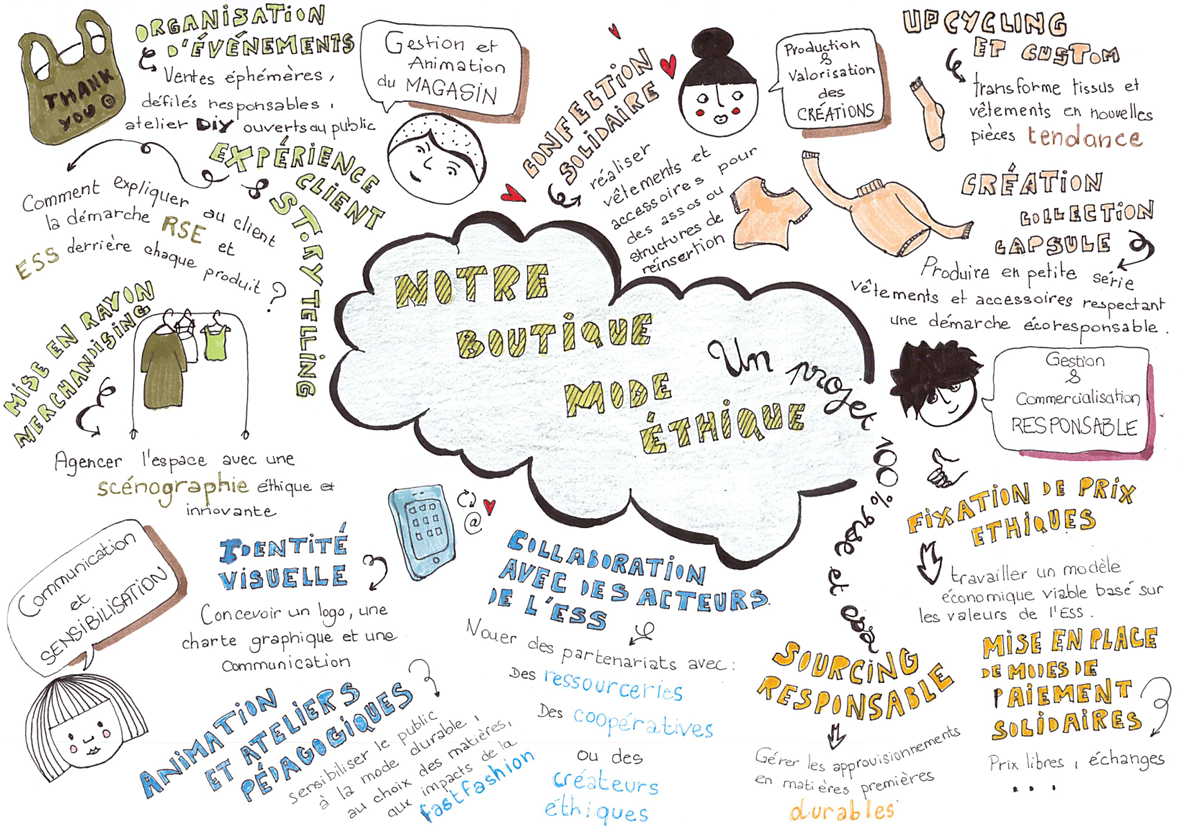 THANK
YOU
ORGANISATION
D'ÉVÉNEMENTS
Ventes éphémères,
défilés responsables,
atelier DIY ouverts au public
Gestion et
Animation
du MAGASIN
EXPÉRIENCE
CLIENT
STORYTELLING
Comment expliquer au client
la démarche RSE et
ESS derrière chaque produit ?
MISE EN RAYON
MERCHANDISING
Agencer l'espace avec une
scénographie éthique et
innovante
CONFECTION
SOLIDAIRE
réaliser
vêtements et
accessoires pour
des assos ou
structures de
réinsertion
Production
&
Valorisation
des
CRÉATIONS
UPCYCLING
ET CUSTOM
transforme tissus et
vêtements en nouvelles
pièces tendance
CRÉATION
COLLECTION
CAPSULE
Produire en petite série
vêtements et accessoires respectant
une démarche écoresponsable.
NOTRE
BOUTIQUE
MODE
ÉTHIQUE
Un projet 100% rse et ess
Gestion
&
Commercialisation
RESPONSABLE
FIXATION DE PRIX
ETHIQUES
travailler un modèle
économique viable basé sur
les valeurs de l'Ess.
MISE EN PLACE
DE MODES DE
PAIEMENT
SOLIDAIRES
Prix libres, échanges
...
SOURCING
RESPONSABLE
Gérer les approvisionnements
en matières premières
durables
Communication
et
SENSIBILISATION
IDENTITÉ
VISUELLE
Concevoir un logo, une
charte graphique et une
communication
@
ANIMATION
ET ATELIERS
PÉDAGOGIQUES
Sensibiliser le public
à la mode durable,
au choix des matières,
aux impacts de la
fastfashion
COLLABORATION
AVEC DES ACTEURS
DE L'ESS
Nouer des partenariats avec :
Des ressourceries
Des coopératives
ou des
créateurs
éthiques